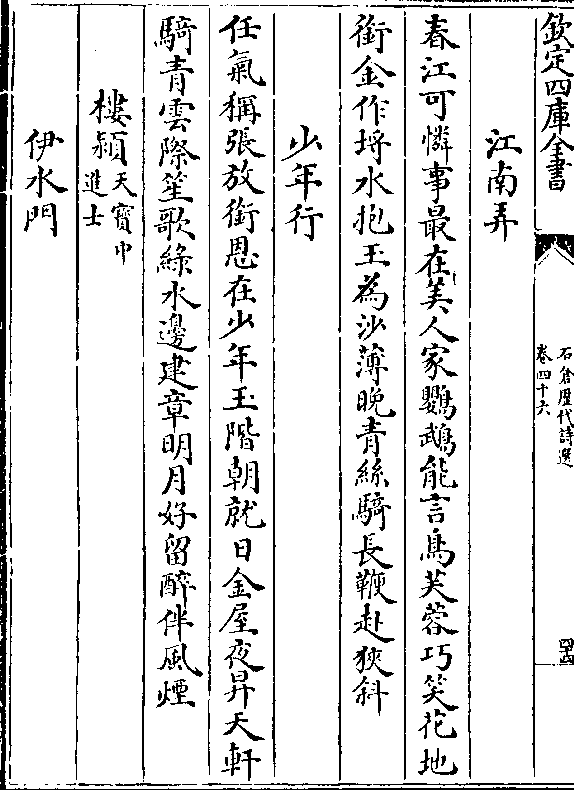 欽定四庫全書
石倉歷代詩選
卷四十六
江南弄
春江可憐事最在美人家鸚鵡能言鳥芙蓉巧笑花地
銜金作埓水抱玉為沙薄晚青絲騎長鞭赴狹斜
少年行
任氣稱張放銜恩在少年玉階朝就日金屋夜昇天軒
騎青雲際笙歌綠水邊建章明月好留醉伴風煙
樓穎天寶中
進士
伊水門